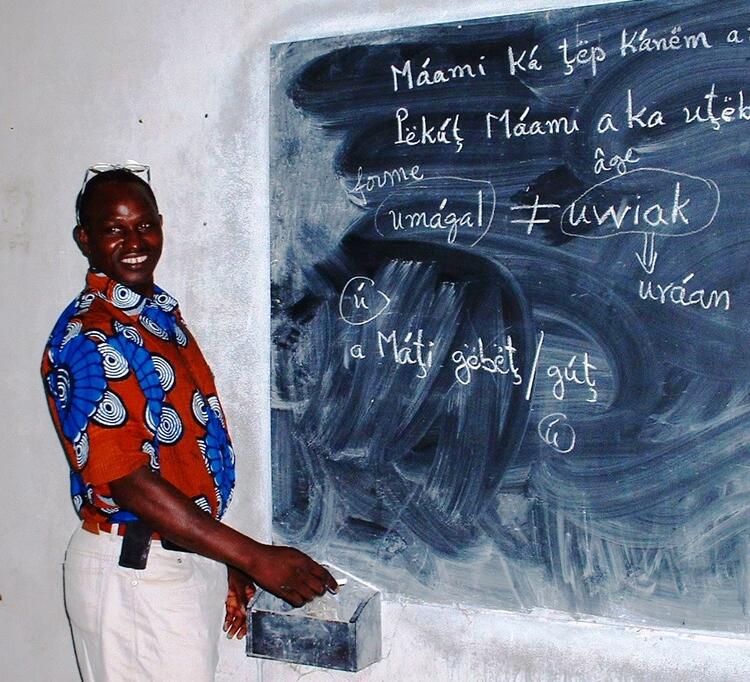 Máami ká ţëp kánëm a
Pëkúţ Máami a ka uţëb
forme
âge
umágal ≠ uwiak
⇓
uráan
ú
a Máţi gëbëţ / gúţ
ú